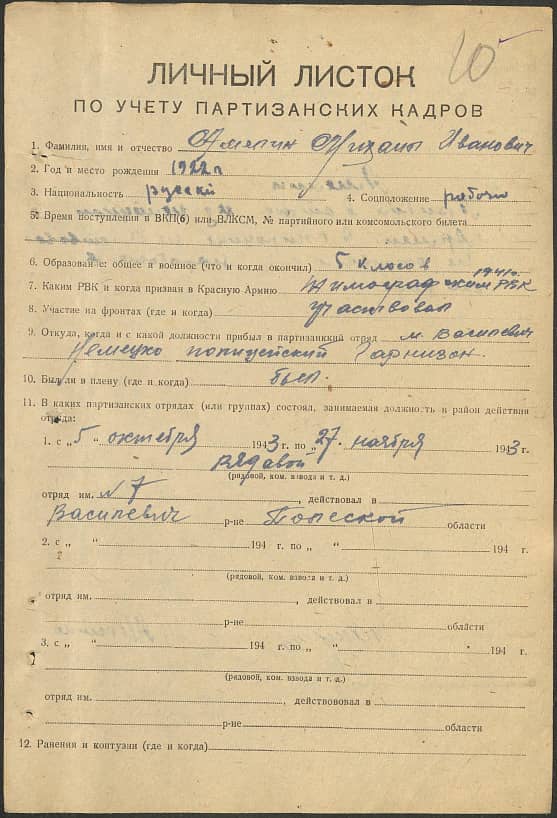 10
ЛИЧНЫЙ ЛИСТОК
ПО УЧЕТУ ПАРТИЗАНСКИХ КАДРОВ
1. Фамилия, имя и отчество Амелин Михаил Иванович
2. Год и место рождения 1922 г
3. Национальность русский 4. Соцположение рабочий
5. Время поступления в ВКП(б) или ВЛКСМ, № партийного или комсомольского билета
6. Образование: общее и военное (что и когда окончил) 5 класов
1941 г.
7. Каким РВК и когда призван в Красную Армию РВК
8. Участие на фронтах (где и когда) участвовал
9. Откуда, когда и с какой должности прибыл в партизанский отряд м. Василевич
Немецко полицейский Гарнизон.
10. Был ли в плену (где и когда) был
11. В каких партизанских отрядах (или группах) состоял, занимаемая должность и район действия
отряда:
1. с „ 5 “ октября 1943 г. по „ 27 “ ноября 1943 г.
рядавой
(рядовой, ком. взвода и т. д.)
отряд им. №7 , действовал в
Василевич р-не Полеской области
2. с „ “ 194 г. по „ “ 194 г.
(рядовой, ком. взвода и т. д.)
отряд им. , действовал в
р-не области
3. с „ “ 194 г. по „ “ 194 г.
(рядовой, ком. взвода и т. д.)
отряд им. , действововал в
р-не области
12. Ранения и контузии (где и когда)